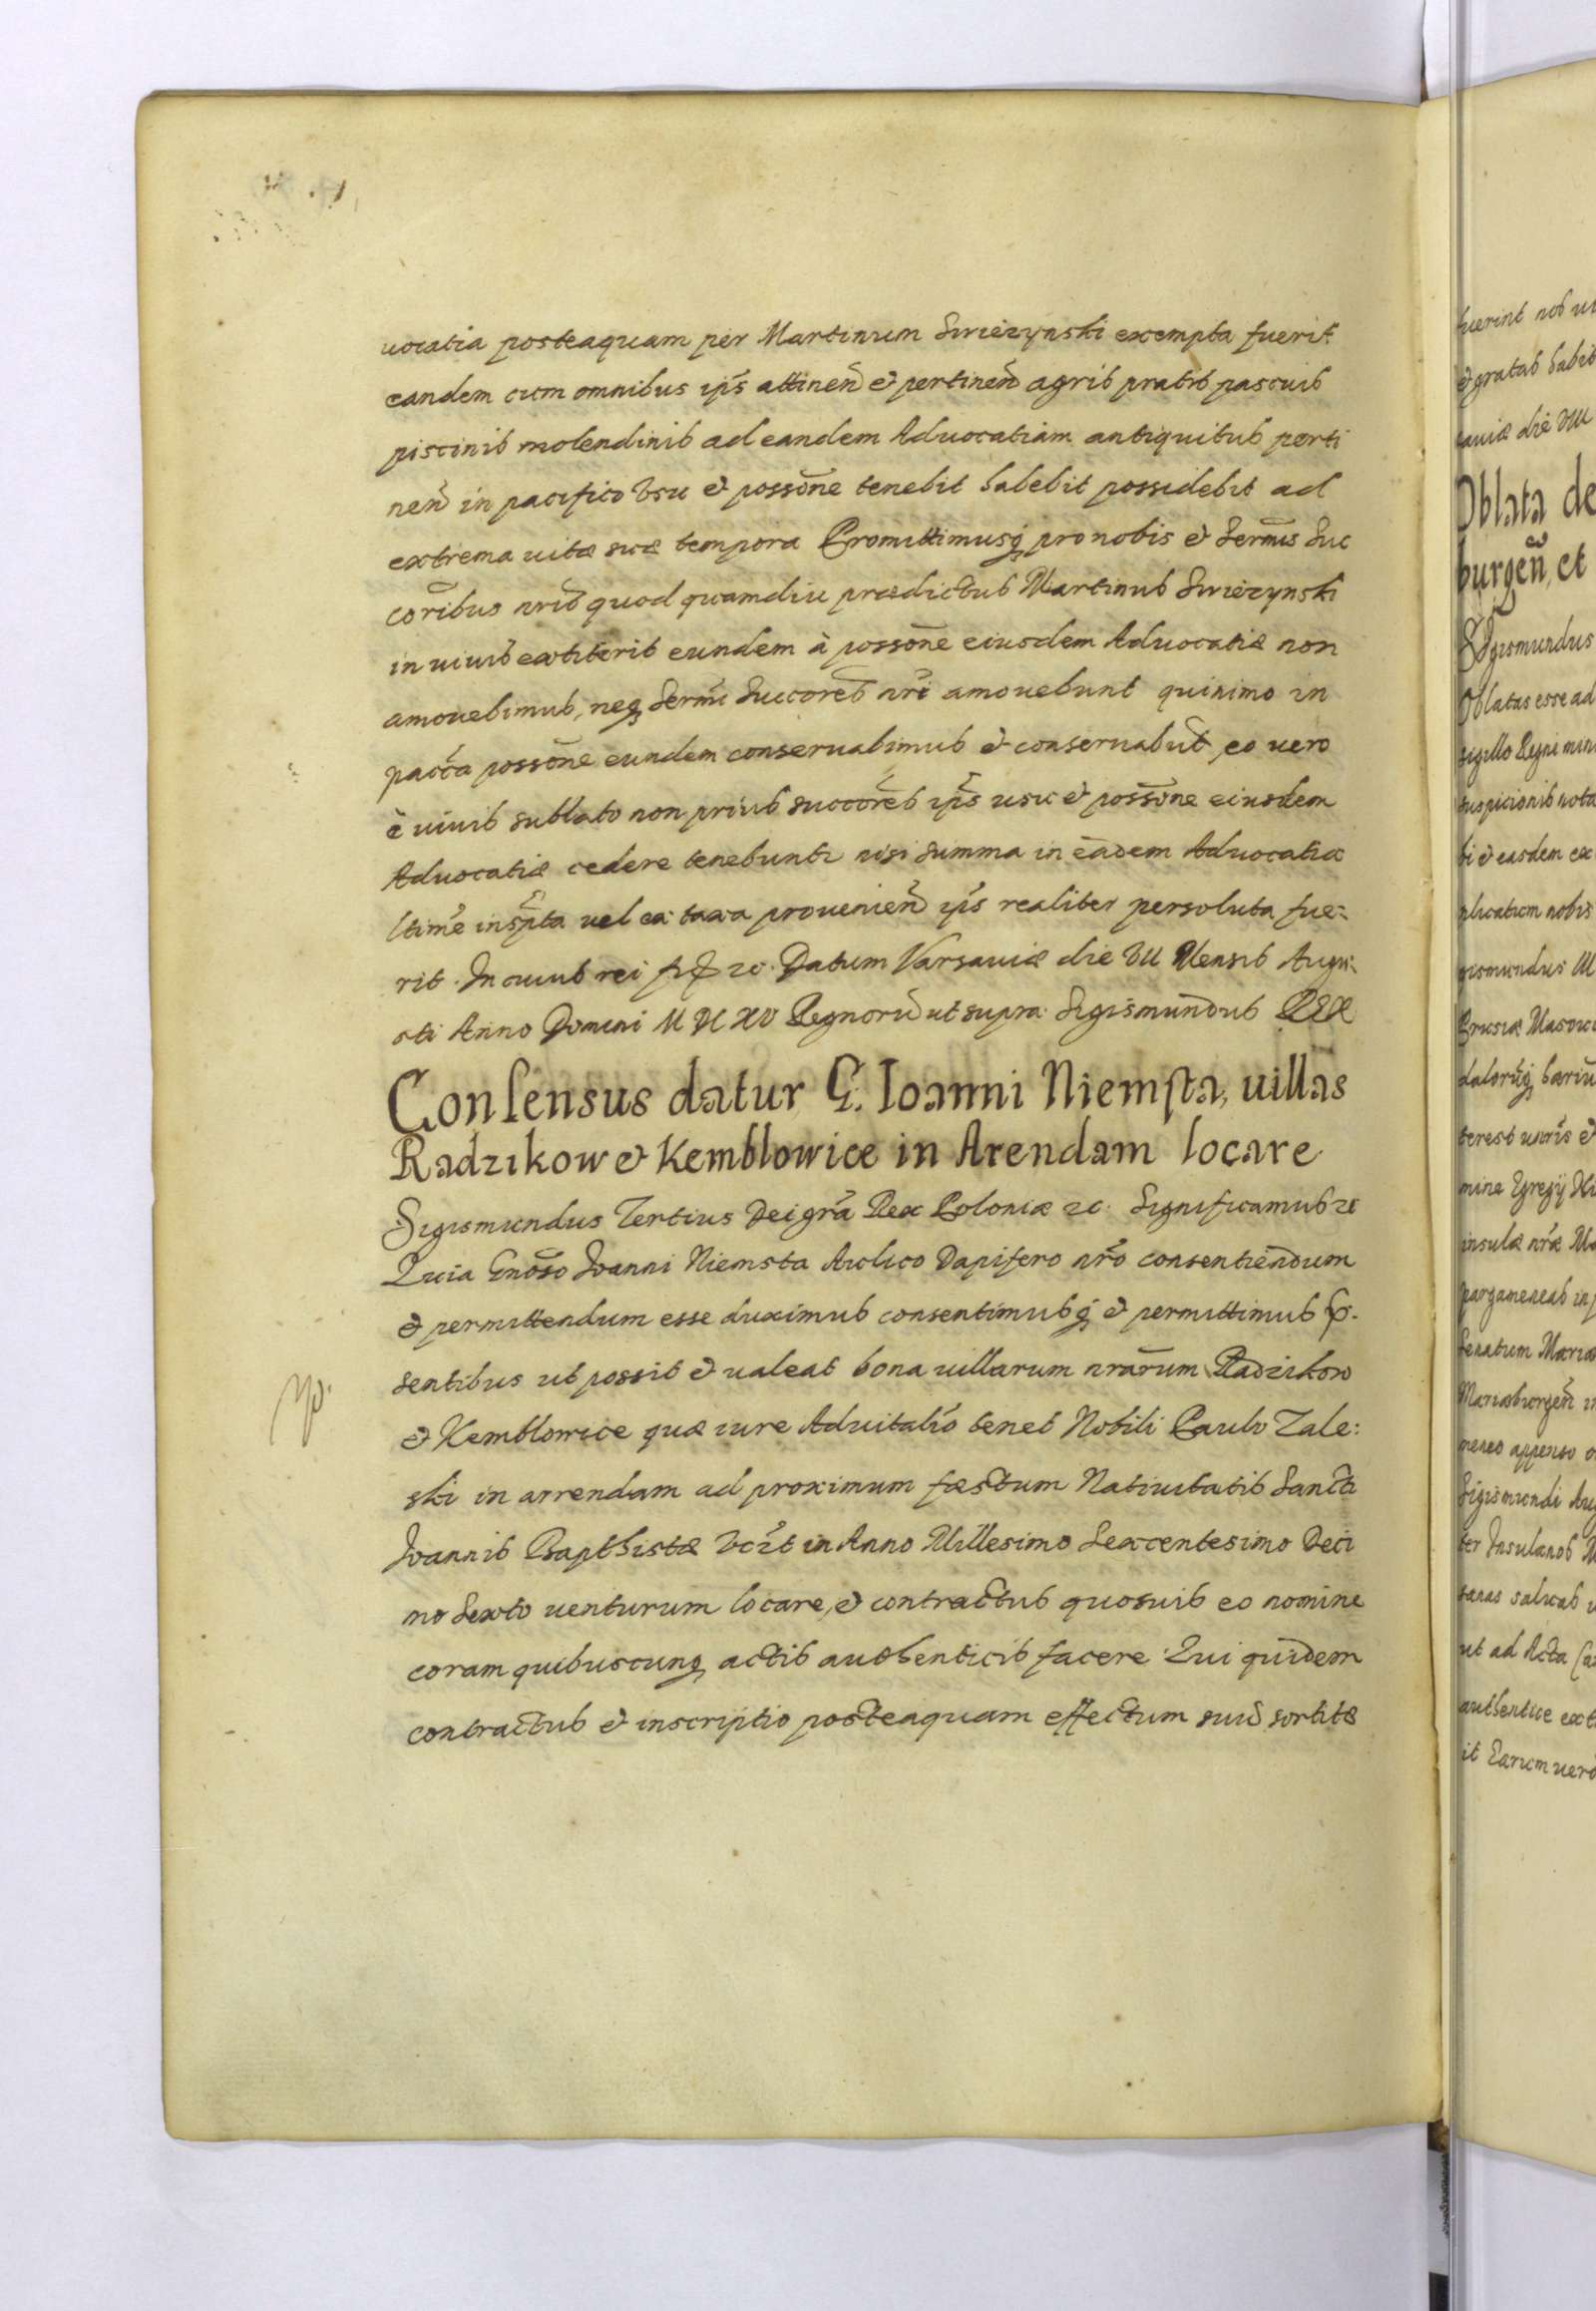 uocatia posteaquam per Martinum Swiezynski exempta fuerit
eandem cum omnibus ip̄s attineñ & pertineñ agris pratis pascuis
piscinis molendinis ad eandem Aduocatiam antiquitus perti
neñ in pacifico vsu & possōne tenebit habebit possidebit ad
extrema uitæ suæ tempora Promittimusq̢ pro nobis & Serm̄is Suc
cor̄ibus nr̄is quod quamdiu prædictus Martinus Swiezynski
in uiuis extiterit eundem à possōne eiusdem Aduocatiæ non
amouebimus, neq̢ Serm̄i Succores nr̄i amouebunt quinimo in
pacc̄a possōne eundem conseruabimus & conseruabūt, eo uero
è uiuis sublato non prius succor̄es ip̄s usu & possōne eiusdem
Aduocatiæ cedere tenebuntr nisi summa in eadem Aduocatia
ltimē insp̄ta uel ex taxa proueneiñ ip̄s realiter persoluta fue:
rit. In cuius rei fid 2c. Datum Varsauiæ die VII Mensis Augu:
sti Anno Domini M DC XV Regnorū ut supra. Sigismundus REX
Consensus datur G. Ioanni Niemsta, uillas
Radzikow & Kemblowice in Arendam locare
Sigismundus Tertius Dei grā Rex Poloniæ 2c. Significamus 2c
Quia Gnōso Ioanni Niemsta Aulico Dapifero nr̄o consentiendum
& permittendum esse duximus consentimusq̢ & permittimus p̄.
sentibus ut possit & ualeat bona uillarum nrārum Radzikow
& Kemblowice quæ iure Aduitalīo tenet Nobili Paulo Zale:
ski in arrendam ad proximum fæstum Natiuitatis Sancti
Ioannis Bapthistæ vc̄zt in Anno Millesimo Sexcentesimo Deci
mo Sexto uenturum locare, & contractus quosuis eo nomine
coram quibuscunq̢ actis authenticis facere. Qui quidem
contractus & inscriptio posteaquam effectum suū sortitæ
fuerint nos
& gratas habit
sauiæ die VIII
Oblata de
burgeñ, et
Sigismundus
Oblatas esse ad
sigillo Regni min
suspicionis nota
bi & easdem ex
plicatum nobis
gismundus
Prusiæ Masoui
dalorūq̢
terest uxr̄is &
mine Egregij
insulæ nr̄æ Ma
pargameneas in
Senatum Mariæ
Mariæburgeñ in
meneo appenso
Sigismundi Aug
ter Insulanos
sanas saluas
ut ad Acta
authentice ext
it Earum uero